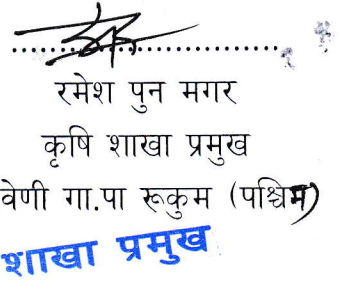 रमेश पुन मगर
कृषि शाखा प्रमुख
वेणी गा.पा रूकुम (पश्चिम)
शाखा प्रमुख